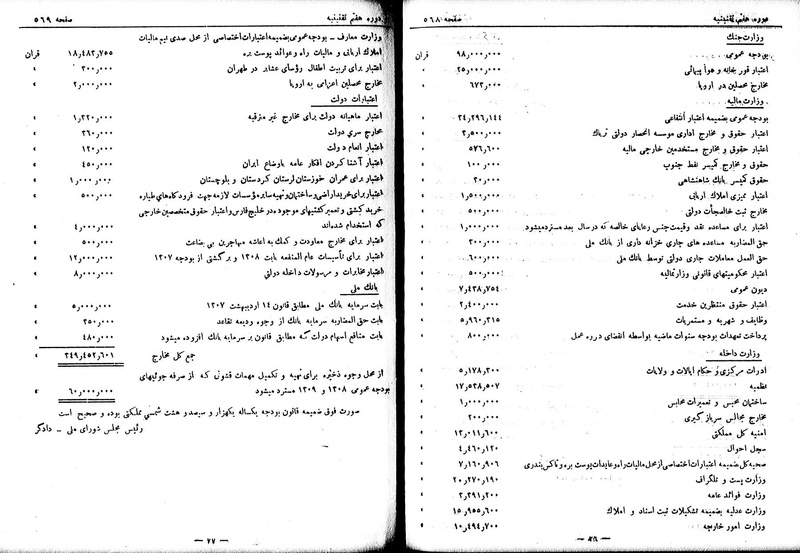 دوره هفتم تقنینیه صفحه ۵۶۸
وزارت جنگ
بودجه عمومی ۹۸,۰۰۰,۰۰۰
اعتبار قورخانه و هواپیمائی ۲۵,۰۰۰,۰۰۰ »
مخارج محصلین در اروپا ۶۷۳,۰۰۰ »
وزارت مالیه
بودجه عمومی بضمیمه اعتبار انتفاعی ۳۴,۲۹۶,۱۴۴ »
اعتبار حقوق و مخارج اداری موسسه انحصار دولتی تریاک ۳,۵۰۰,۰۰۰ »
اعتبار حقوق و مخارج مستخدمین خارجی مالیه ۵۷۶,۶۰۰ »
حقوق و مخارج کمیسر نفط جنوب ۱۰۰,۰۰۰ »
حقوق کمیسر بانک شاهنشاهی ۳۰,۰۰۰ »
اعتبار ممیزی املاک اربابی ۱,۵۰۰,۰۰۰ »
مخارج ثبت خالصجات دولتی ۵۰۰,۰۰۰ »
اعتبار برای مساعده نقد و قیمت جنس رعایای خالصه که در سال بعد مسترد میشود ۱,۰۰۰,۰۰۰ »
حق المضاربه مساعده های جاری خزانه داری از بانک ملی ۳۰۰,۰۰۰ »
حق العمل معاملات جاری دولتی توسط بانک ملی ۶۰۰,۰۰۰ »
اعتبار محکومیتهای قانونی وزارتمالیه ۵۰۰,۰۰۰ »
دیون عمومی ۷,۴۳۸,۷۵۴ »
اعتبار حقوق منتظرین خدمت ۲,۴۰۰,۰۰۰ »
وظایف و شهریه و مستمریات ۵,۹۶۰,۳۱۵ »
پرداخت تعهدات بودجه سنوات ماضیه بواسطه انقضای دوره عمل ۸۰۰,۰۰۰ »
وزارت داخله
ادارات مرکزی و حکام ایالات و ولایات ۵,۱۷۸,۳۰۰ »
نظمیه ۱۷,۵۳۸,۵۰۷ »
ساختمان محبس و تعمیرات محابس ۱,۰۰۰,۰۰۰ »
مخارج مجالس سربازگیری ۲۰۰,۰۰۰ »
امنیه کل مملکتی ۱۲,۰۱۱,۶۰۰ »
سجل احوال ۴,۴۶۰,۱۲۰ »
صحیه کل بضمیمه اعتبارات اختصاصی از محل مالیات راه و عایدات پوست بره و تاکس بندری ۷,۱۶۰,۹۰۶ »
وزارت پست و تلگراف ۲۰,۲۷۰,۱۹۰ »
وزارت فوائد عامه ۲,۳۹۱,۲۰۰ »
وزارت عدلیه بضمیمه تشکیلات ثبت اسناد و املاک ۱۵,۹۵۵,۶۰۰ »
وزارت امور خارجه ۱۰,۴۹۴,۷۰۰ »
دوره هفتم تقنینیه صفحه ۵۶۹
وزارت معارف ـ بودجه عمومی بضمیمه اعتبارات اختصاصی از محل صدی نیم مالیات
املاک اربابی و مالیات راه و عوائد پوست بره ۱۸,۴۸۳,۷۵۵ قران
اعتبار برای تربیت اطفال رؤسای عشایر در طهران ۳۰۰,۰۰۰ »
مخارج محصلین اعزامی به اروپا ۲,۰۰۰,۰۰۰ »
اعتبارات دولت
اعتبار ماهیانه دولت برای مخارج غیر مترقبه ۱,۳۲۰,۰۰۰ »
مخارج سری دولت ۳۶۰,۰۰۰ »
اعتبار انعام دولت ۱۲۰,۰۰۰ »
اعتبار آشنا کردن افکار عامه باوضاع ایران ۴۵۰,۰۰۰ »
اعتبار برای عمران خوزستان لرستان کردستان و بلوچستان ۱,۰۰۰,۰۰۰ »
اعتبار برای خرید اراضی و ساختمان و تهیه سایر مؤسسات لازمه جهت فرودگاههای طیاره ۵۰۰,۰۰۰ »
خرید کشتی و تعمیر کشتیهای موجوده در خلیج فارس و اعتبار حقوق متخصصین خارجی
که استخدام شده‌اند ۴,۰۰۰,۰۰۰ »
اعتبار برای مخارج معاودت و کمک به اعاشه مهاجرین بی بضاعت ۵۰۰,۰۰۰ »
اعتبار برای تأسیسات عام المنفعه بابت ۱۳۰۸ و برگشتی از بودجه ۱۳۰۷ ۱۲,۰۰۰,۰۰۰ »
اعتبار مخابرات و مرسولات داخله دولتی ۸,۰۰۰,۰۰۰ »
بانک ملی
بابت سرمایه بانک ملی مطابق قانون ۱۴ اردیبهشت ۱۳۰۷ ۵,۰۰۰,۰۰۰ »
بابت حق المضاربه سرمایه بانک از وجوه ودیعه تقاعد ۳۵۰,۰۰۰ »
بابت منافع اسهام دولت که مطابق قانون بر سرمایه بانک افزوده میشود ۴۸۰,۰۰۰ »
جمع کل مخارج ۳۴۹,۴۵۲,۶۰۱ »
از محل وجوه ذخیره برای تهیه و تکمیل مهمات قشونی که از صرفه جوئیهای
بودجه عمومی ۱۳۰۸ و ۱۳۰۹ مسترد میشود ۶۰,۰۰۰,۰۰۰ »
صورت فوق ضمیمه قانون بودجه یکساله یکهزار و سیصد و هشت شمسی مملکتی بوده و صحیح است
رئیس مجلس شورای ملی ـ دادگر
ـ ۷۷ ـ